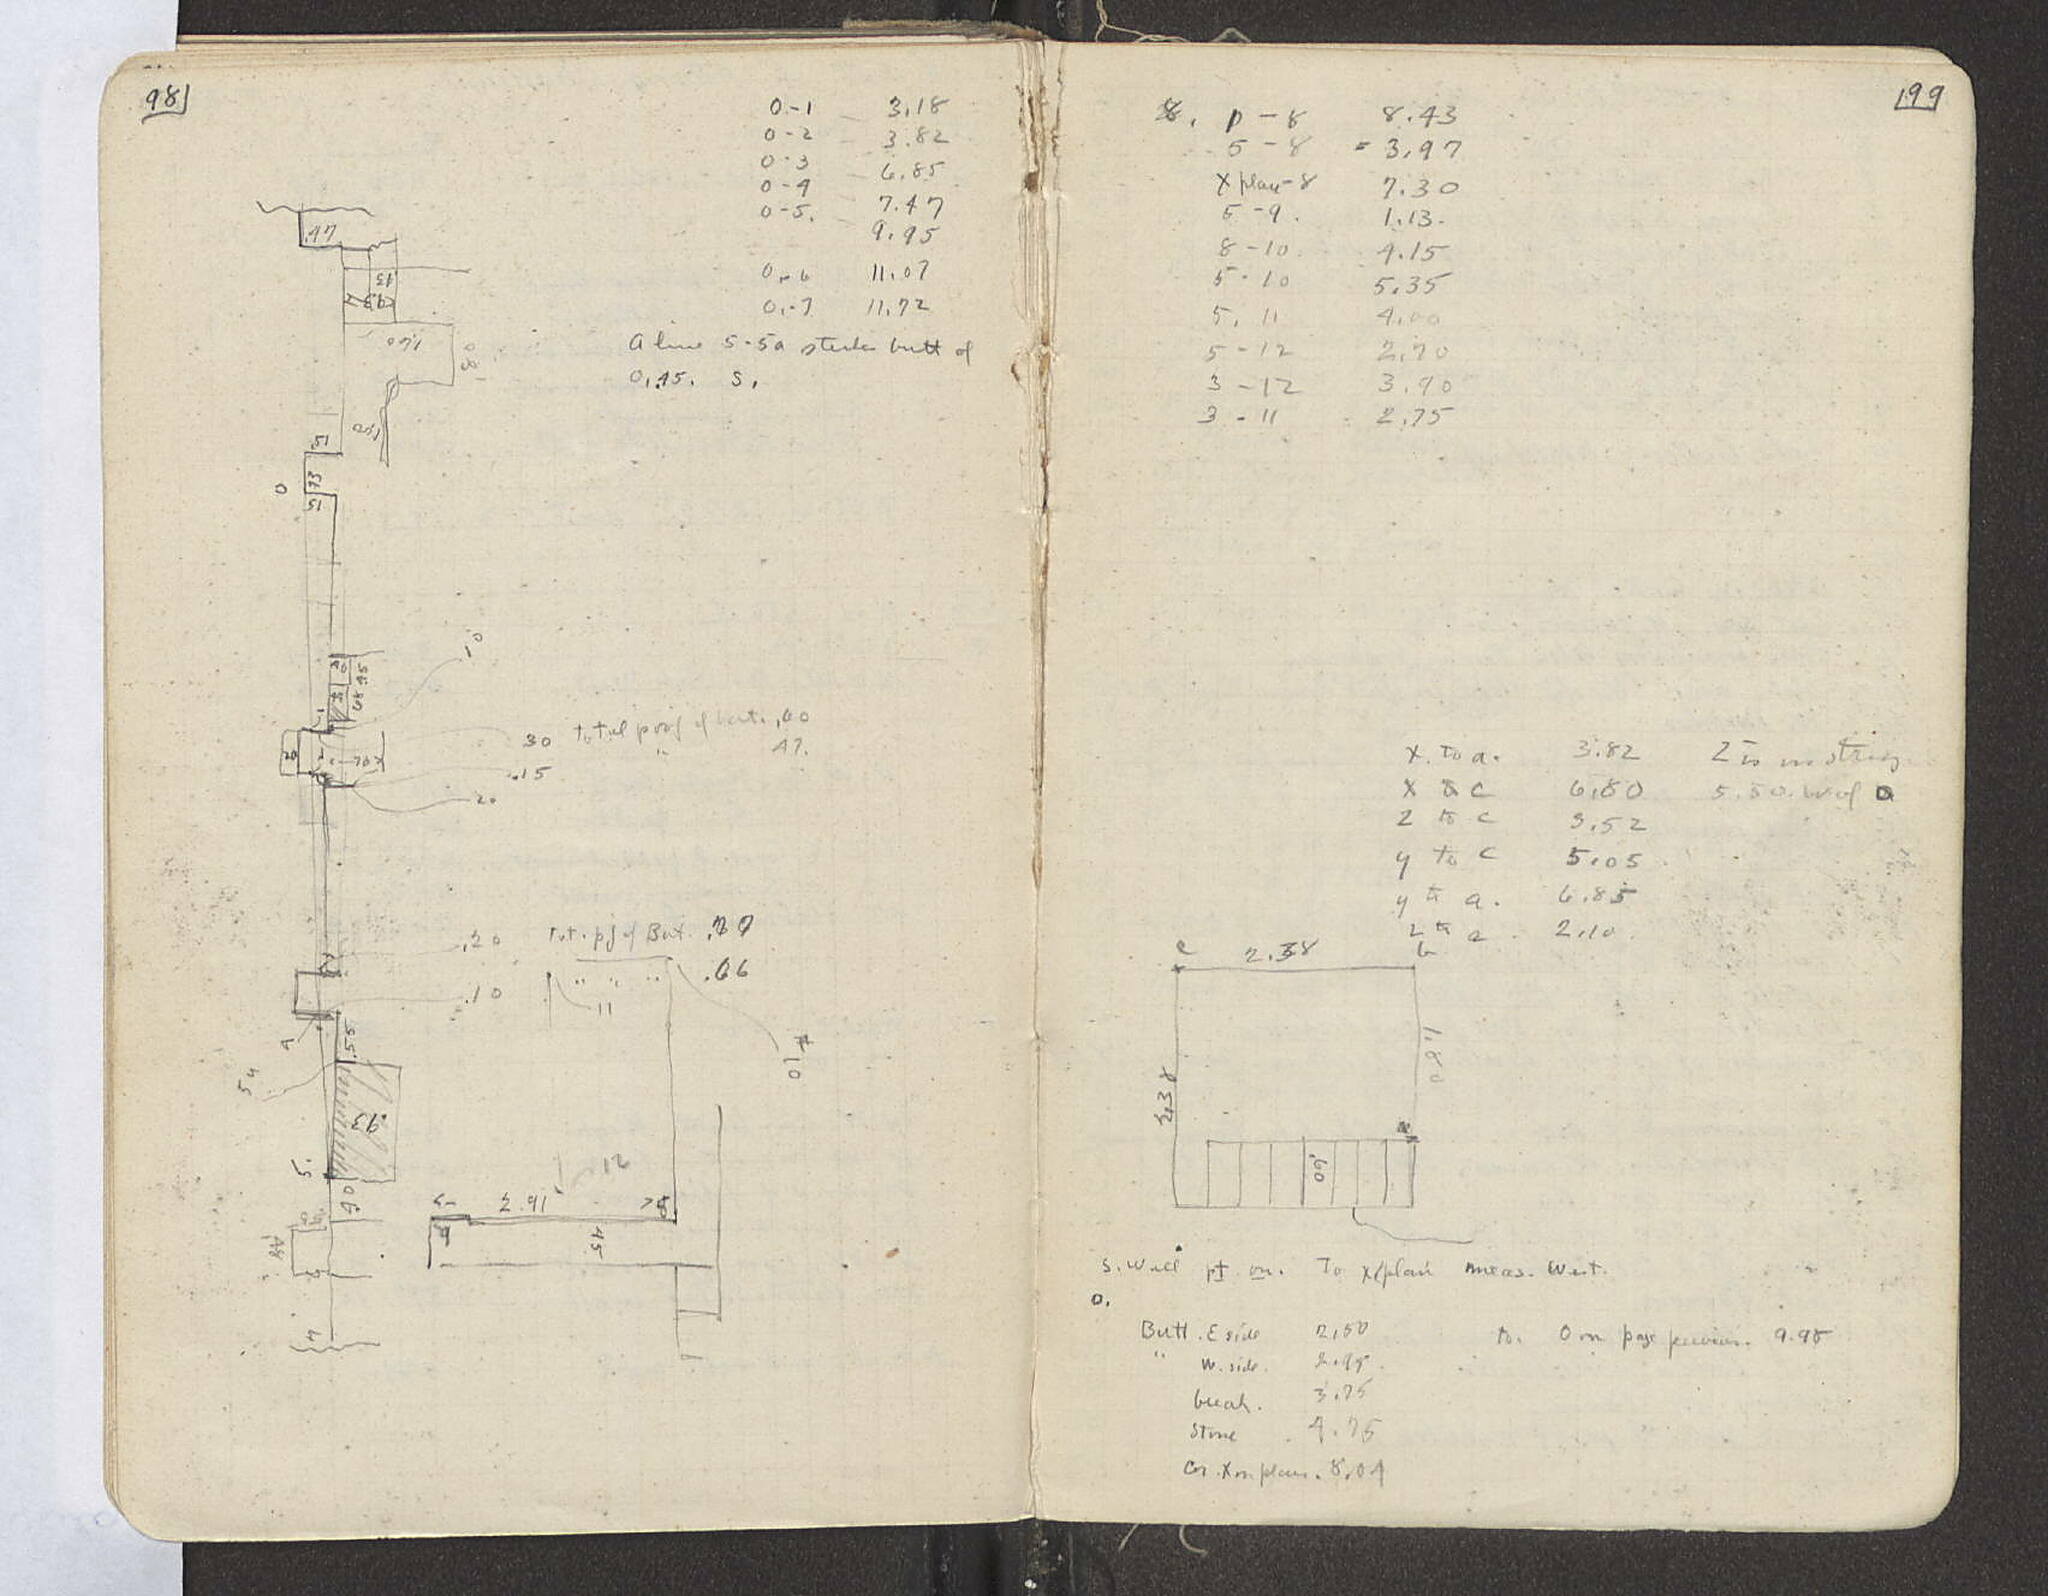 98
0-1 3.18
0-2 3.82
0-3 6.85
0-4 7.47
0-5. 9.95
0-6 11.07
0-7 11.72
A line 5-5a butt of
0.45. S.
.47
.43
1.60
.80
0
.51
.93
.51
10
.45
.68
30 total proj of butt. .60
" 47.
.15
20
.20 tot. pj of But. .77
.10 " " " .66
11
10
4
.55
5a
.93
5.
.90
12
2.91
.45
199
8. p-8 8.43
5-8 = 3.97
X plan-8 7.30
5-9. 1.13.
8-10. 4.15
5-10 5.35
5.11 4.00
5-12 2.70
3-12 3.90
3-11 2.75
x. to a. 3.82 Z is in string
x to c 6.80 5.50. W of a
Z to c 3.52
y to c 5.05
y to a. 6.85
Z to a. 2.10.
c 2.38 b
1.80
2.38
a
.60
S. Wall pt on. To x/plan meas. West.
0.
Butt. E side 2.50 to. 0 on page previous. 9.98
" W. side.
break. 3.75
Stone 4.75
Cor. X on plan. 8.04